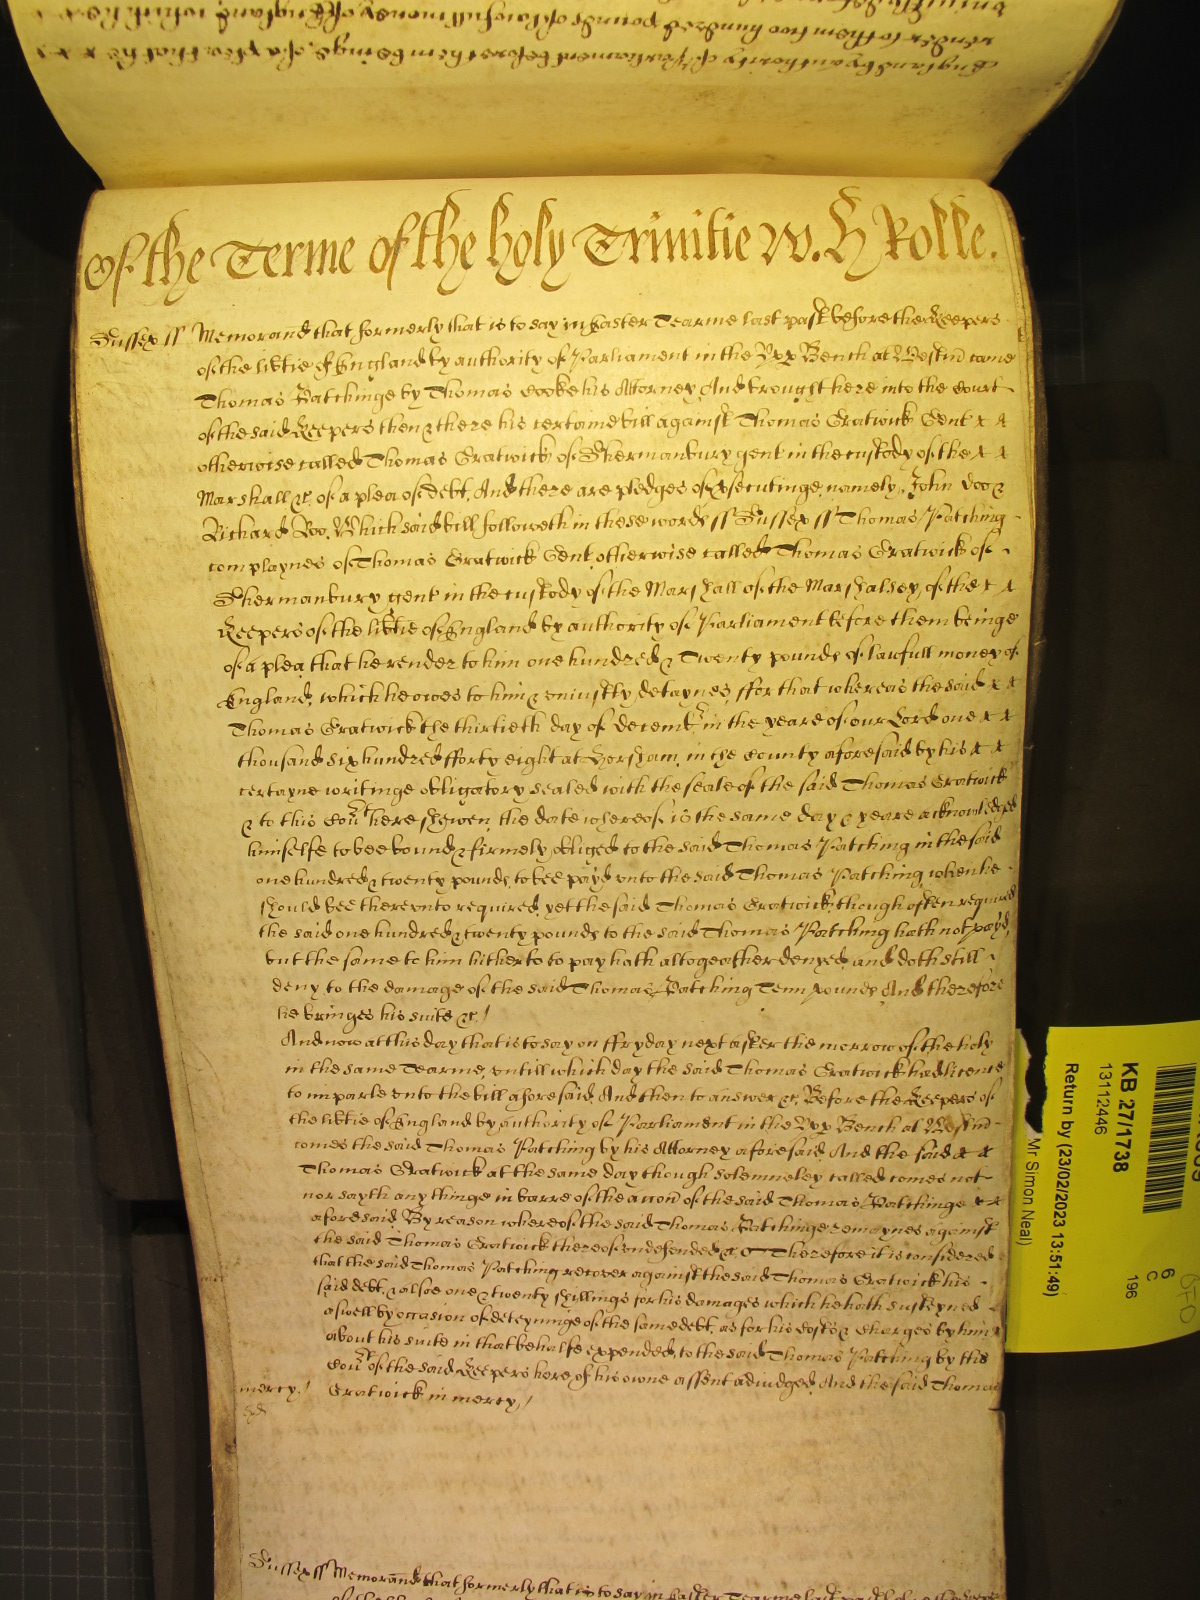 England by authority of Parliament before them beinge of a plea that he
render to them two hundred pounds of lawfull money of England which he
Of the Terme of the holy Trinitie W. H Rolle.
Sussex ss Memorand that formerly that is to say in Easter Tearme last past before the Keepers
of the libtie of England by authority of Parliament in the Vpp Bench at Westm came
Thomas Patchinge by Thomas Cooke his Attorney And brought here into the Court
of the said Keepers then & there his certaine bill against Thomas Gratwick Gent
otherwise called Thomas Gratwick of Shermanbury gent in the custody of the
Marshall &c. of a plea of debt, And there are pledges of psecutinge, namely, John Doo &
Richard Roo, Which said bill followeth in these words ss Sussex ss Thomas Patching
complaynes of Thomas Gratwick Gent otherwise called Thomas Gratwick of
Shermanbury gent in the custody of the Marshall of the Marshalsey, of the
Keepers of the libtie of England by authority of Parliament before them beinge
of a plea that he render to him one hundred & Twenty pounds of lawfull money of
England, which he owes to him & vniustly detaynes, ffor that whereas the said
Thomas Gratwick the thirtieth day of decembr in the yeare of our Lord one
thousand six hundred fforty eight at Horsham, in the County aforesaid by his
certayne writinge obligatory sealed with the seale of the said Thomas Gratwick
& to this Court here shewen, the date whereof is the same day & yeare acknowledged
himselfe to bee bound & firmely obliged to the said Thomas Patching in the said
one hundred & twenty pounds, to bee payd vnto the said Thomas Patching when he
should bee therevnto required, yet the said Thomas Gratwick, though often required
the said one hundred & twenty pounds to the said Thomas Patching hath not payd,
but the same to him hitherto to pay hath altogeather denyed, and doth still
deny to the damage of the said Thomas Patching Tenn pounds And therefore
he bringes his suite &c /
And now at this day that is to say on ffryday next after the morrow of the holy
in the same Tearme, vntill which day the said Thomas Gratwick had licence
to imparle vnto the bill aforesaid, And then to answer &c. Before the Keepers of
the libtie of England by authority of Parliament in the Vpp Bench at Westm
comes the said Thomas Patching by his Attorney aforesaid And the said
Thomas Gratwick at the same day though solemneley called comes not
nor sayth any thinge in barre of the accon of the said Thomas Patchinge
aforesaid By reason whereof the said Thomas Patchinge remaynes against
the said Thomas Gratwick thereof vndefended &c Therefore it is considered
that the said Thomas Patching recover against the said Thomas Gratwick his
said debt, & alsoe one & twenty shillings for his damages which he hath susteyned
aswell by occasion of deteyninge of the same debt, as for his Costs & Charges by him
about his suite in that behalfe expended, to the said Thomas Patching by the
Court of the said Keepers here of his owne assent adiudged, And the said Thomas
mercy. / Gratwick in mercy, /
Sussex ss Memorand that formerly that is to say in Easter Tearme last past before the Keepers
KB 27/1738
13112446
Return by (23/02/2023 13:51:49)
Mr Simon Neal)
6
C
196